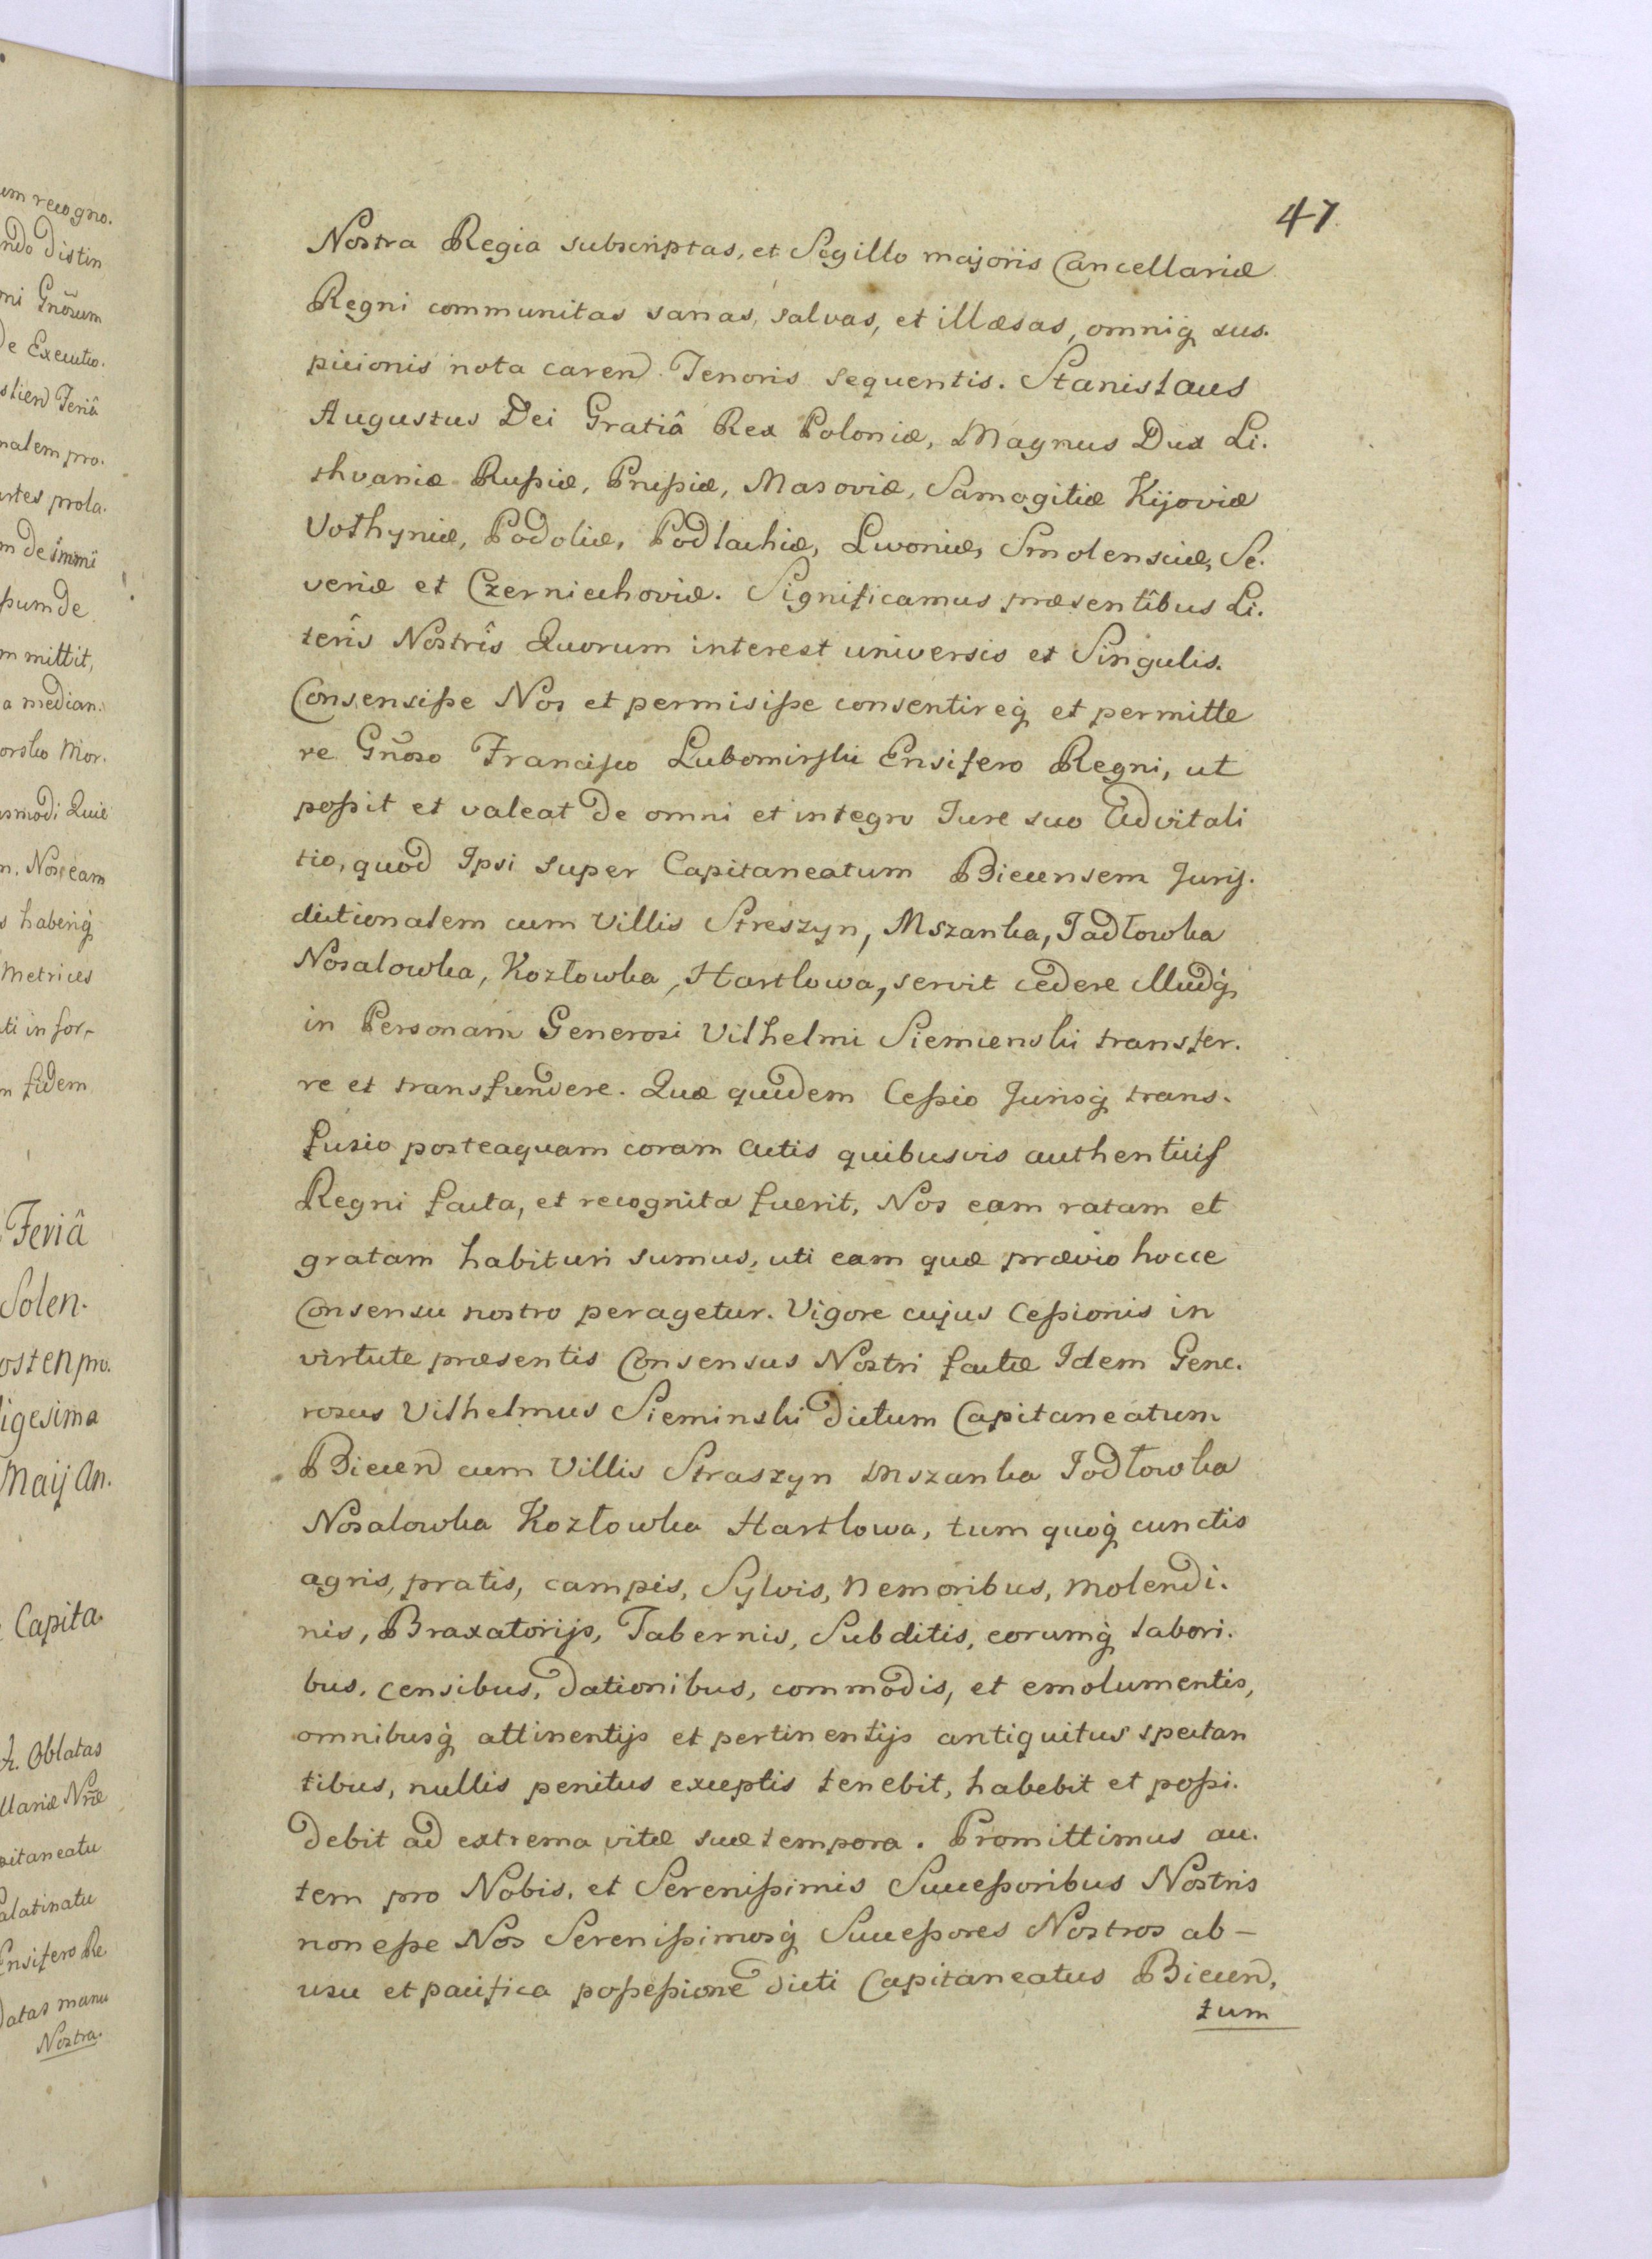 em recogno.
ndo distin
ni Gnõrum
de Executio.
stien Feriâ
nalem pro.
artes prola.
m de immi
ssum de
m mittit,
a median.
orsko Mor.
usmodi Quie
n. Nos eam
s haberiq́
Metrices
ti in for-
n fidem
Feriâ
Solen.
osten pro.
igesima
Maij An.
Capita
A. Oblatas
llariæ Nræ
pitaneatu
alatinatu
Ensifero Re
Datas manu
Nostra.
47.
Nostra Regia subscriptas, et Sigillo majoris Cancellariæ
Regni communitas sanas, salvas, et illæsas, omniq́ sus.
picionis nota caren̄. Tenoris sequentis. Stanislaus
Augustus Dei Gratiâ Rex Poloniæ, Magnus Dux Li.
thvaniæ Russiæ, Prussiæ, Masoviæ, Samogitiæ Kijoviæ
Volhyniæ, Podoliæ, Podlachiæ, Livoniæ, Smolensciæ, Se.
veriæ et Czerniechoviæ. Significamus præsentibus Li.
teris Nostris Quorum interest universis et Singulis.
Consensisse Nos et permisisse consentireq́ et permitte
re Gnõso Francisco Lubomirski Ensifero Regni, ut
possit et valeat de omni et integro Jure suo Advitali
tio, quod Ipsi super Capitaneatum Biecensem Juris.
dictionalem cum Villis Streszyn, Mszanka, Jadłowka
Nosalowka, Kozłowka, Hartlowa, servit cedere illudq́
in Personam Generosi Vilhelmi Siemienski transfer.
re et transfundere. Quæ quidem Cessio Jurisq́ trans.
fusio posteaquam coram Actis quibusvis authenticis
Regni facta, et recognita fuerit, Nos eam ratam et
gratam habituri sumus, uti eam quæ prævio hocce
Consensu nostro peragetur. Vigore cujus Cessionis in
virtute præsentis Consensus Nostri factæ Idem Gene.
rosus Vilhelmus Sieminski dictum Capitaneatum
Biecen̄ cum Villis Straszyn Mszanka Jodłowka
Nosalowka Kozłowka Hartlowa, tum quoq́ cunctis
agris, pratis, campis, Sylvis, Nemoribus, molendi.
nis, Braxatorijs, Tabernis, Subditis, eorumq́ labori.
bus, censibus, dationibus, commodis, et emolumentis,
omnibusq́ attinentijs et pertinentijs antiquitus spectan
tibus, nullis penitus exceptis tenebit, habebit et possi.
debit ad extrema vitæ suæ tempora. Promittimus au.
tem pro Nobis, et Serenissimis Successoribus Nostris
non esse Nos Serenissimosq́ Successores Nostros ab-
usu et pacifica possessione dicti Capitaneatus Biecen̄,
tum